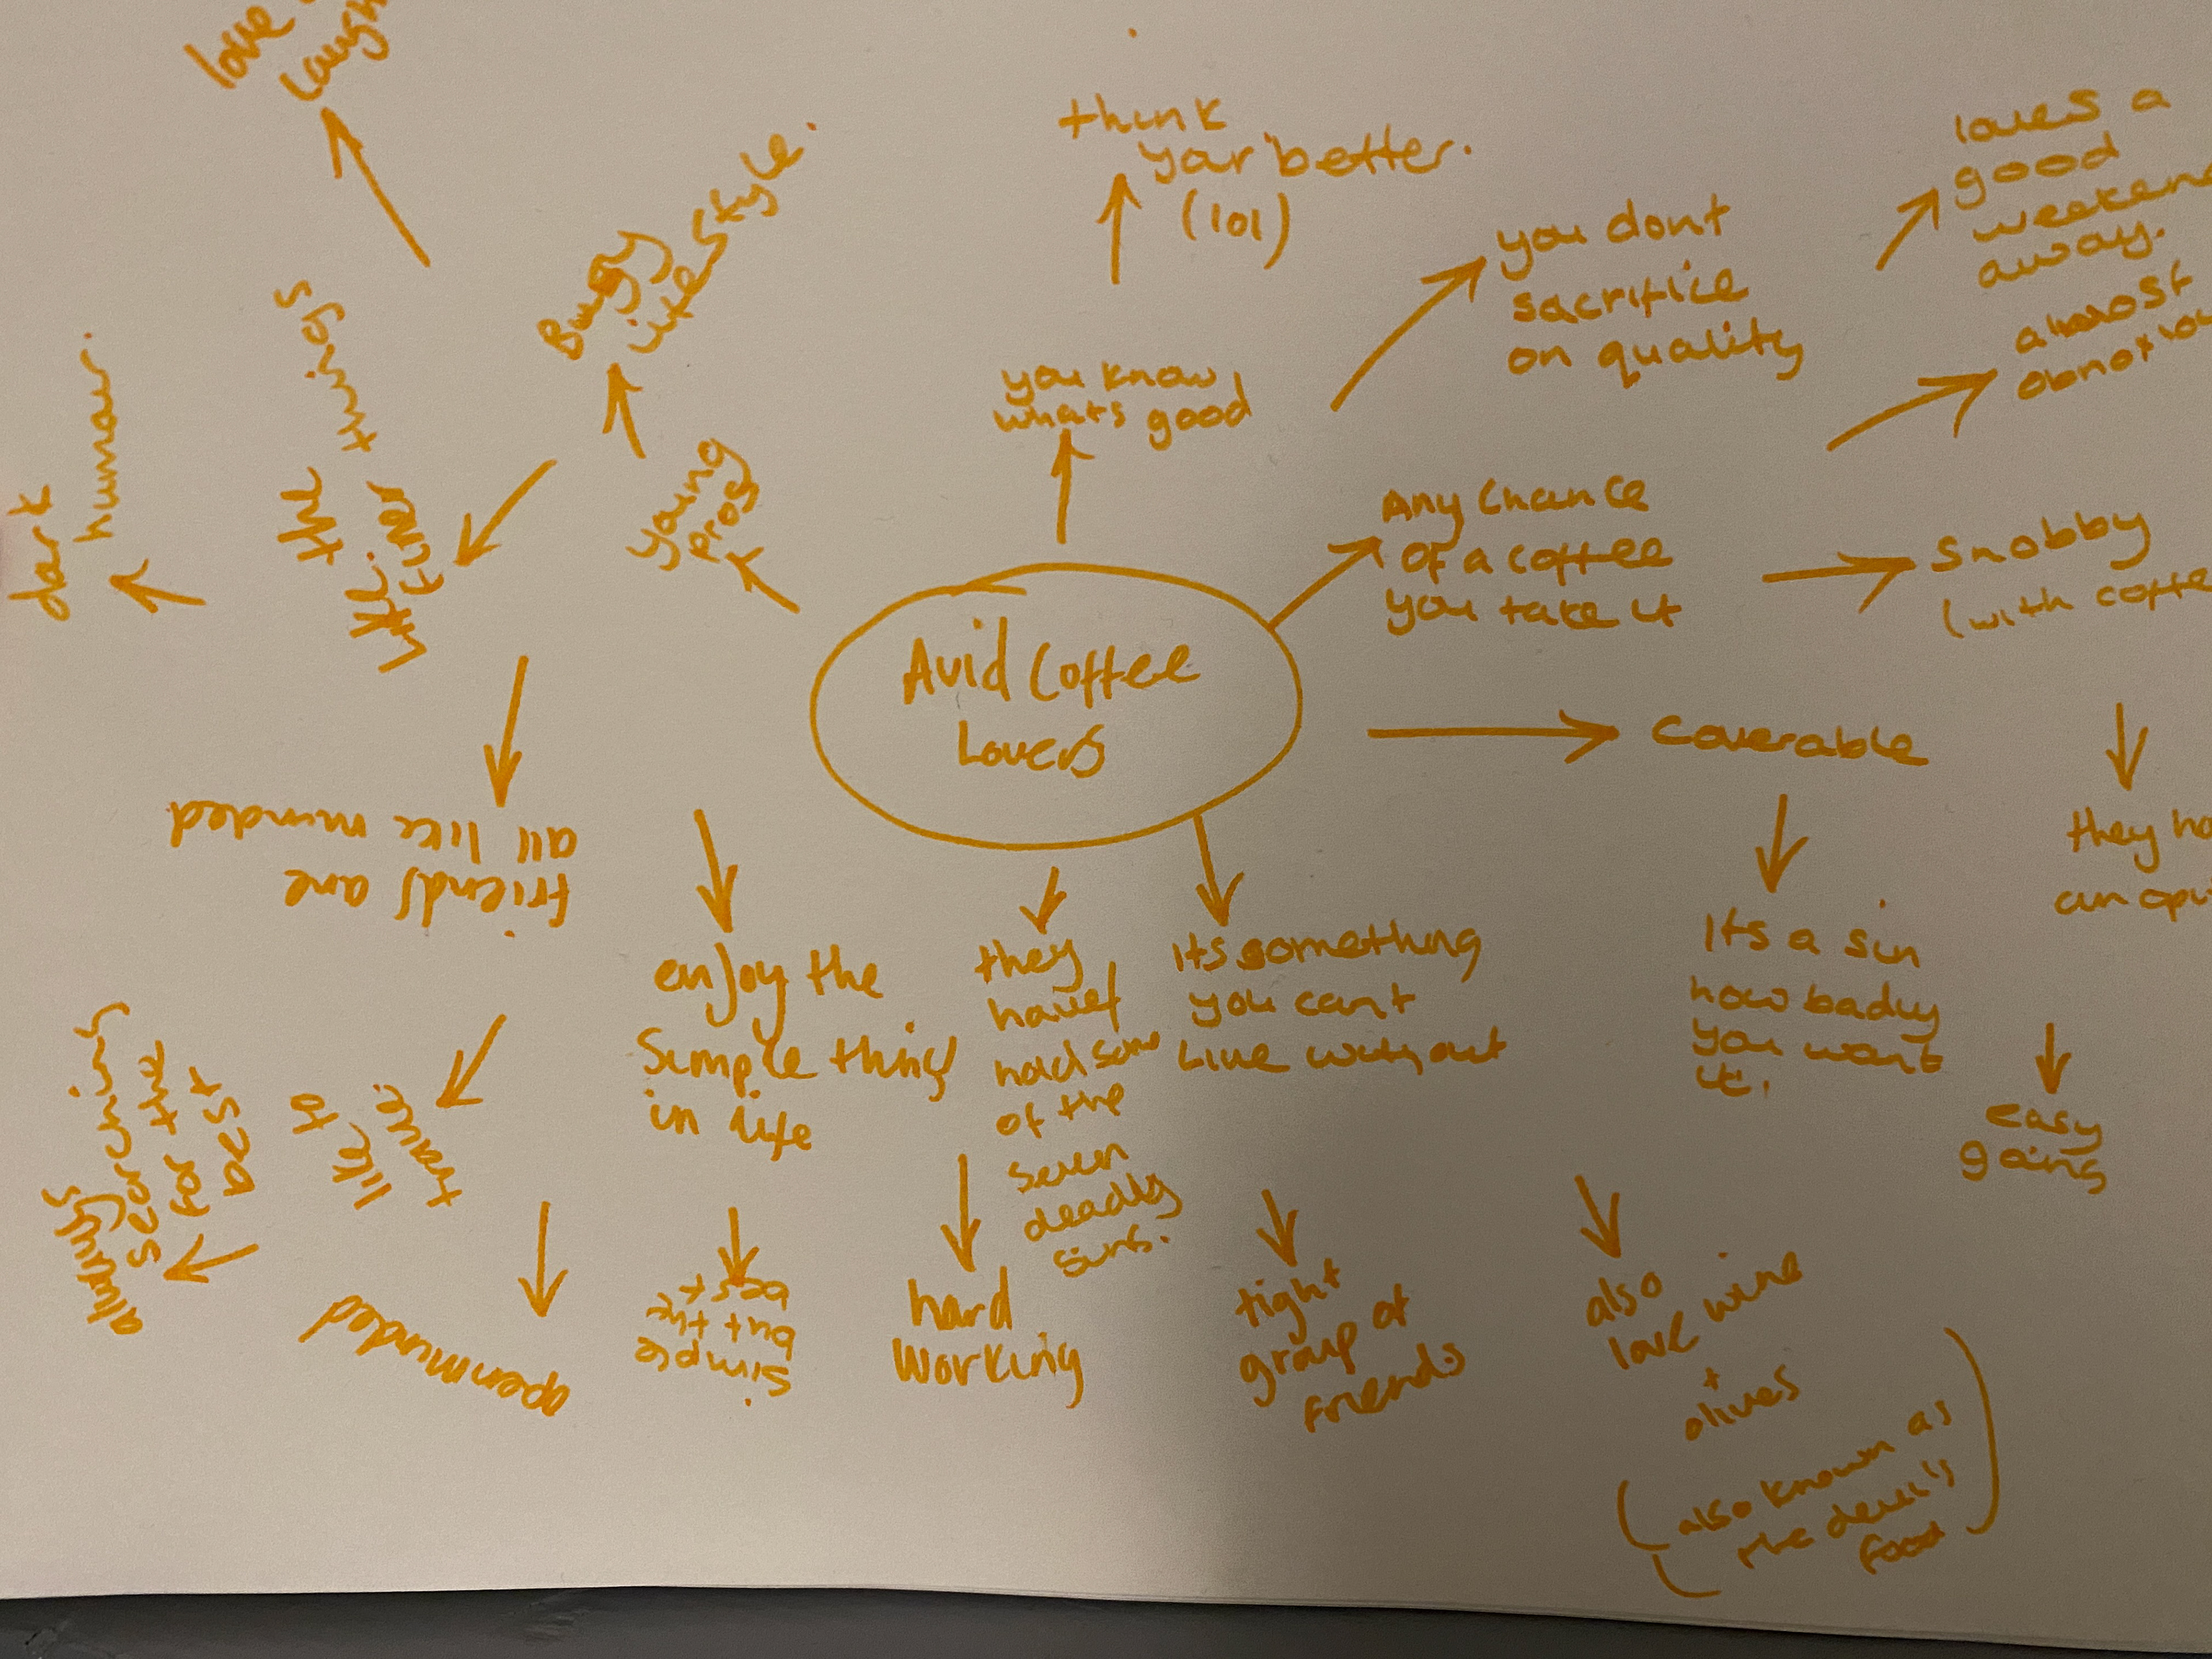 love
laugh
think
your better.
(lol)
loves a
good
weekend
away.
Busy
Lifestyle.
you dont
sacrifice
on quality
almost
the
finer
things
dark
humour.
you know
whats good
Young
Any Chance
of a coffee
you take it
Snobby
(with coffe
Avid Coffee
Lovers
Coverable
friends are
all like minded
they ha
an opi
enjoy the
Simple things
in life
they
have
had some
of the
seven
deadly
sins.
Its something
you cant
Live without
Its a sin
how badly
you want
it.
easy
going
like to
travel
always
searching
for the
best
openminded
simple
but the
best
hard
working
tight
group of
friends
also
love wine
+
olives
(also known as
the devil's
food)